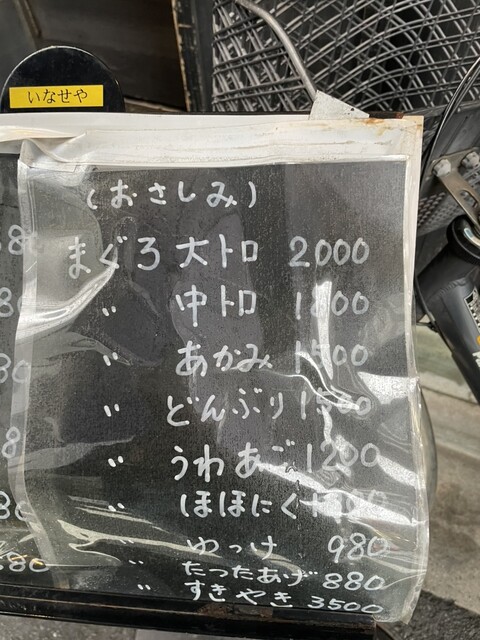 いなせや
(おさしみ)
まぐろ 大トロ 2000
〃 中トロ 1800
〃 あかみ 1500
〃 どんぶり 1500
〃 うわあご 1200
〃 ほほにく
〃 ゆっけ 980
〃 たったあげ 880
〃 すきやき 3500